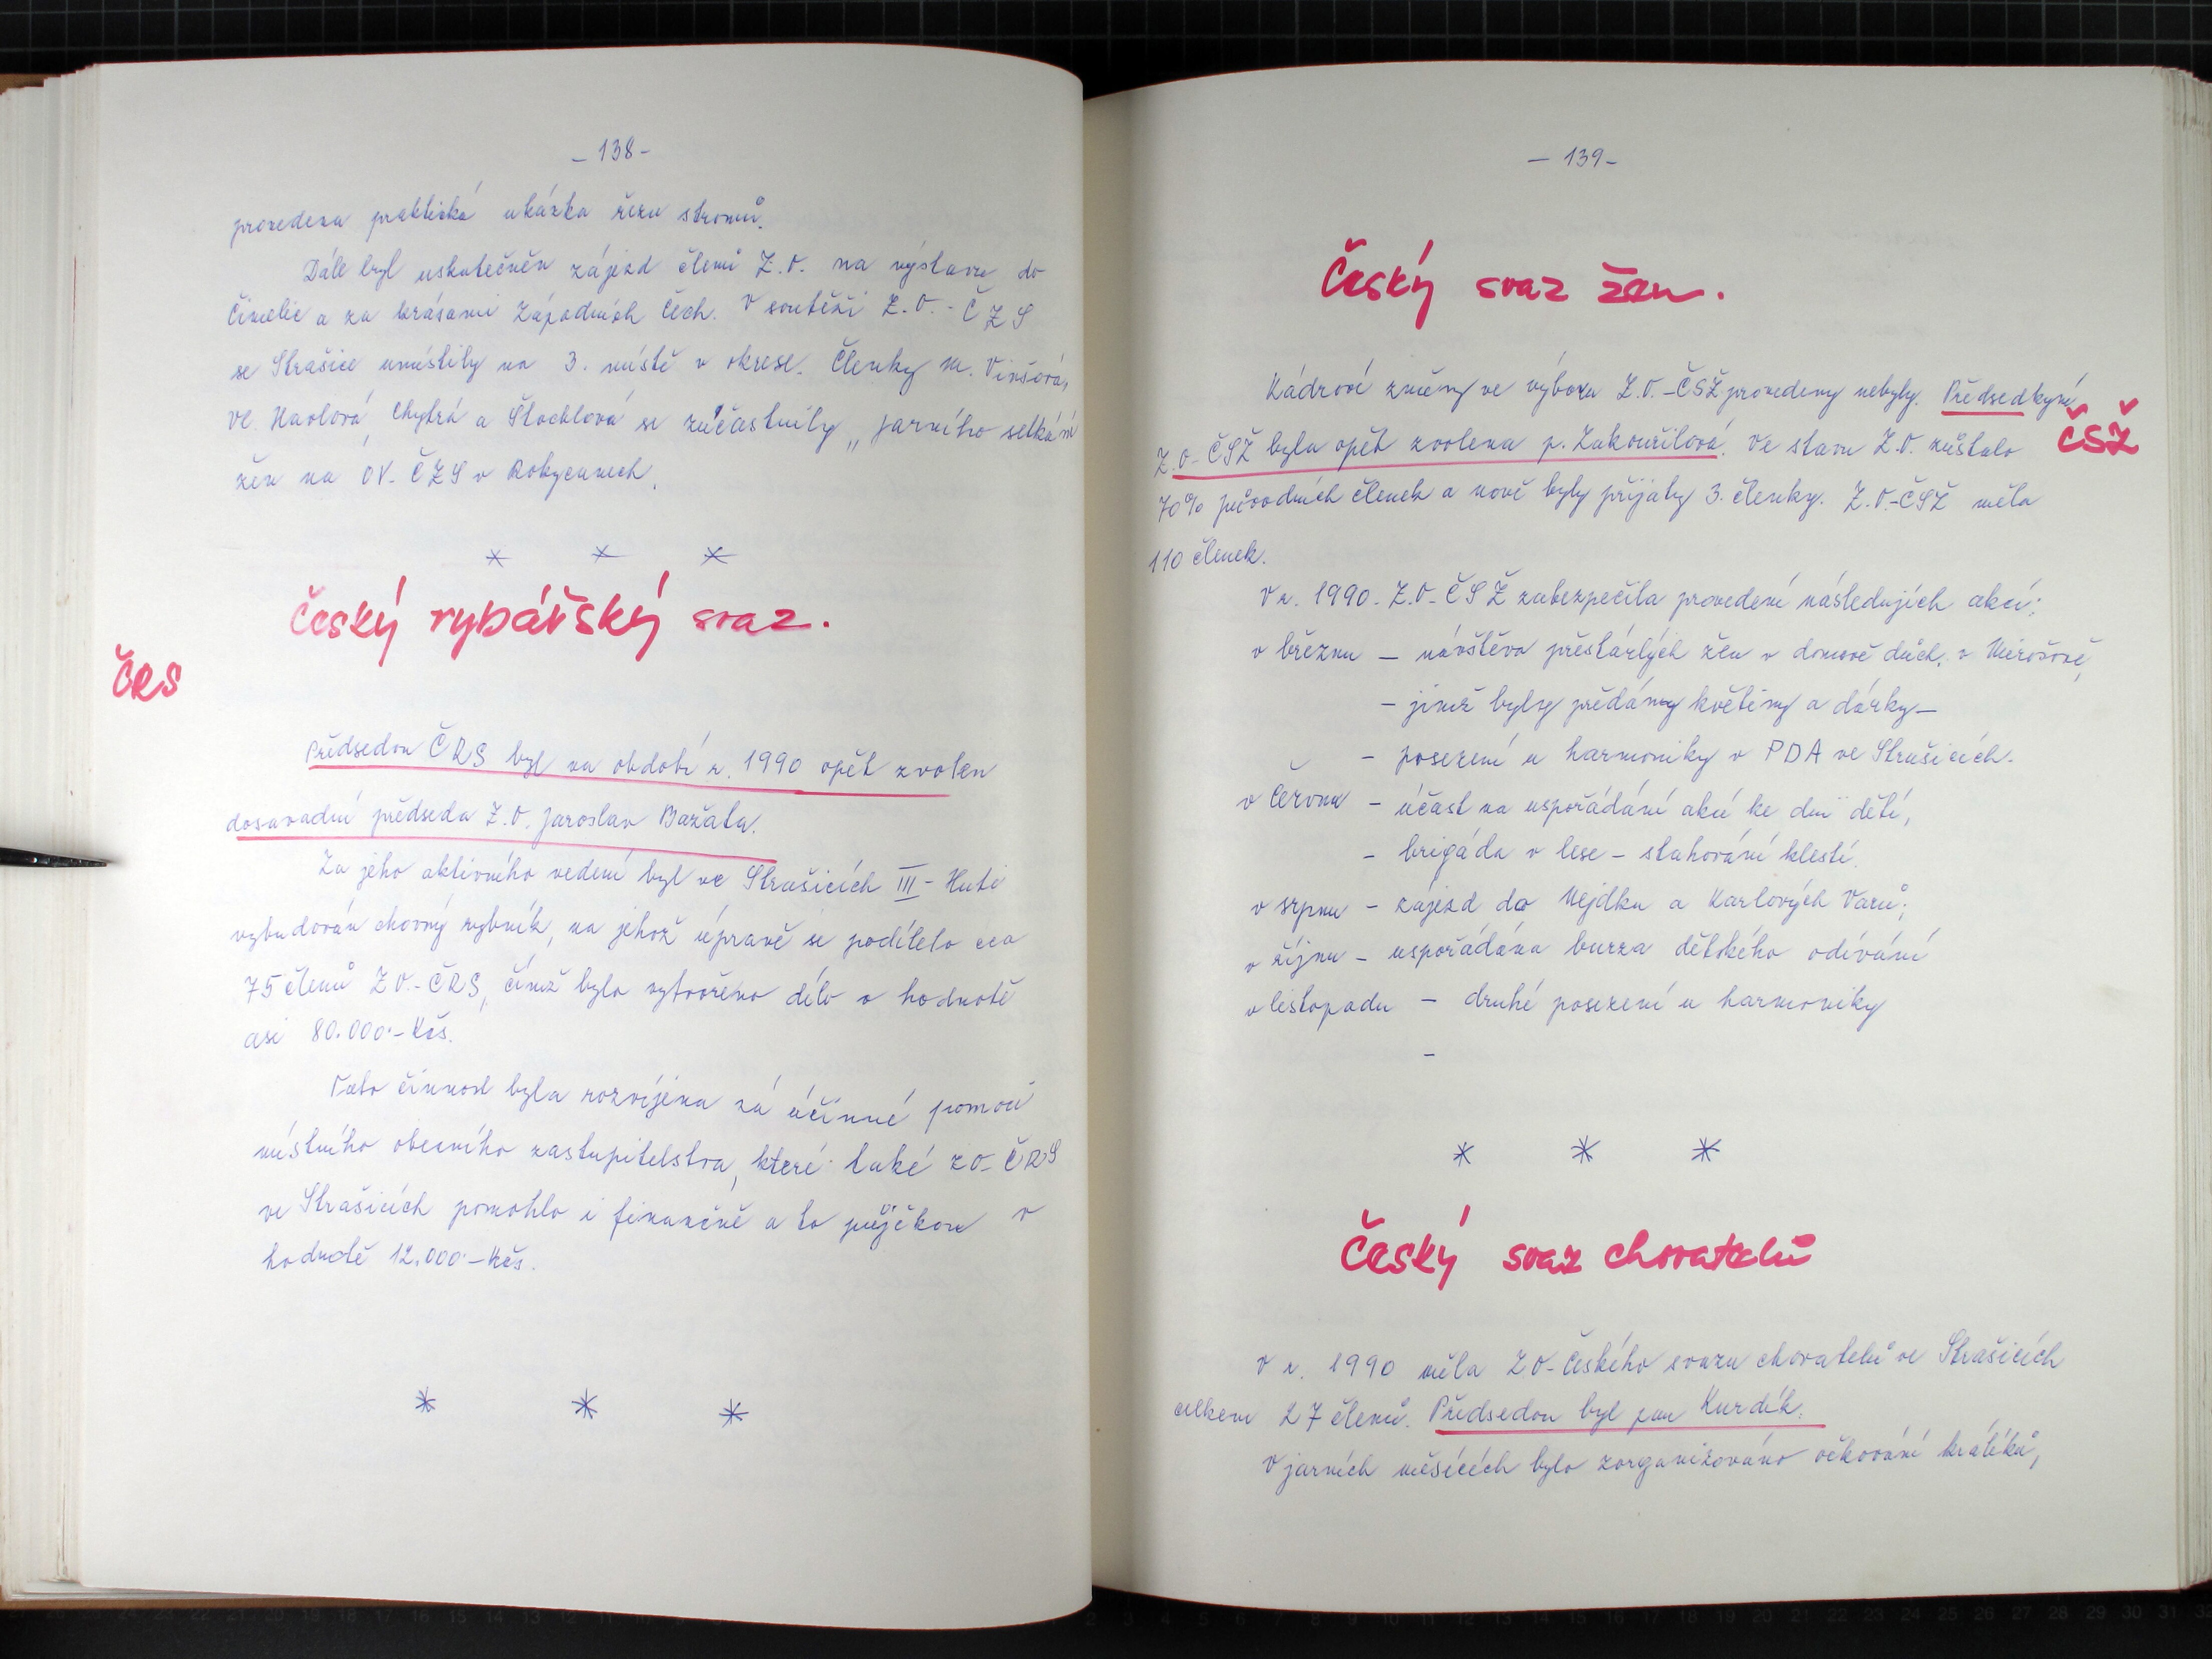 - 138 -
provedena praktická ukázka řezu stromů.
Dále byl uskutečněn zájezd členů Z.O. na výstavu do
Čimelic a za krásami Západních Čech. V soutěži Z.O. - ČZS
se Strašice umístily na 3. místě v okrese. Členky m. Vinšová,
Vl. Havlová, Chytrá a Štochlová se zúčastnily „jarního setkání
žen na OV. ČZS v Rokycanech.
* * *
Český rybářský svaz.
ČRS
Předsedou ČRS byl na období r. 1990 opět zvolen
dosavadní předseda Z.O. Jaroslav Bažata.
Za jeho aktivního vedení byl ve Strašicích III - Huti
vybudován chovný rybník, na jehož úpravě se podílelo cca
75 členů ZO.- ČRS, čímž bylo vytvořeno dílo v hodnotě
asi 80.000.- Kčs.
Tato činnost byla rozvíjena za účinné pomoci
místního obecního zastupitelstva, které také ZO - ČRS
ve Strašicích pomohlo i finančně a to půjčkou v
hodnotě 12.000.- Kčs.
* * *
- 139 -
Český svaz žen.
Kádrové změny ve výboru Z.O. - ČSŽ provedeny nebyly. Předsedkyní
ČSŽ
Z.O - ČSŽ byla opět zvolena p. Zakouřilová. Ve stavu Z.O. zůstalo
70% původních členek a nově byly přijaty 3. členky. Z.O.-ČSŽ měla
110 členek.
V r. 1990. Z.O - ČSŽ zabezpečila provedení následujích akcí:
v březnu - návštěva přestárlých žen v domově důch. v Mirošově,
- jimž byly předány květiny a dárky -
- posezení u harmoniky v PDA ve Strašicích.
v červnu - účast na uspořádání akcí ke dni dětí,
- brigáda v lese - stahování klestí.
v srpnu - zájezd do Nejdku a Karlových Varů;
v říjnu - uspořádána burza dětského odívání
v listopadu - druhé posezení u harmoniky
-
* * *
Český svaz chovatelů
V r. 1990 měla ZO - Českého svazu chovatelů ve Strašicích
celkem 27 členů. Předsedou byl pan Kurdík.
V jarních měsících bylo zorganizováno očkování králíků,